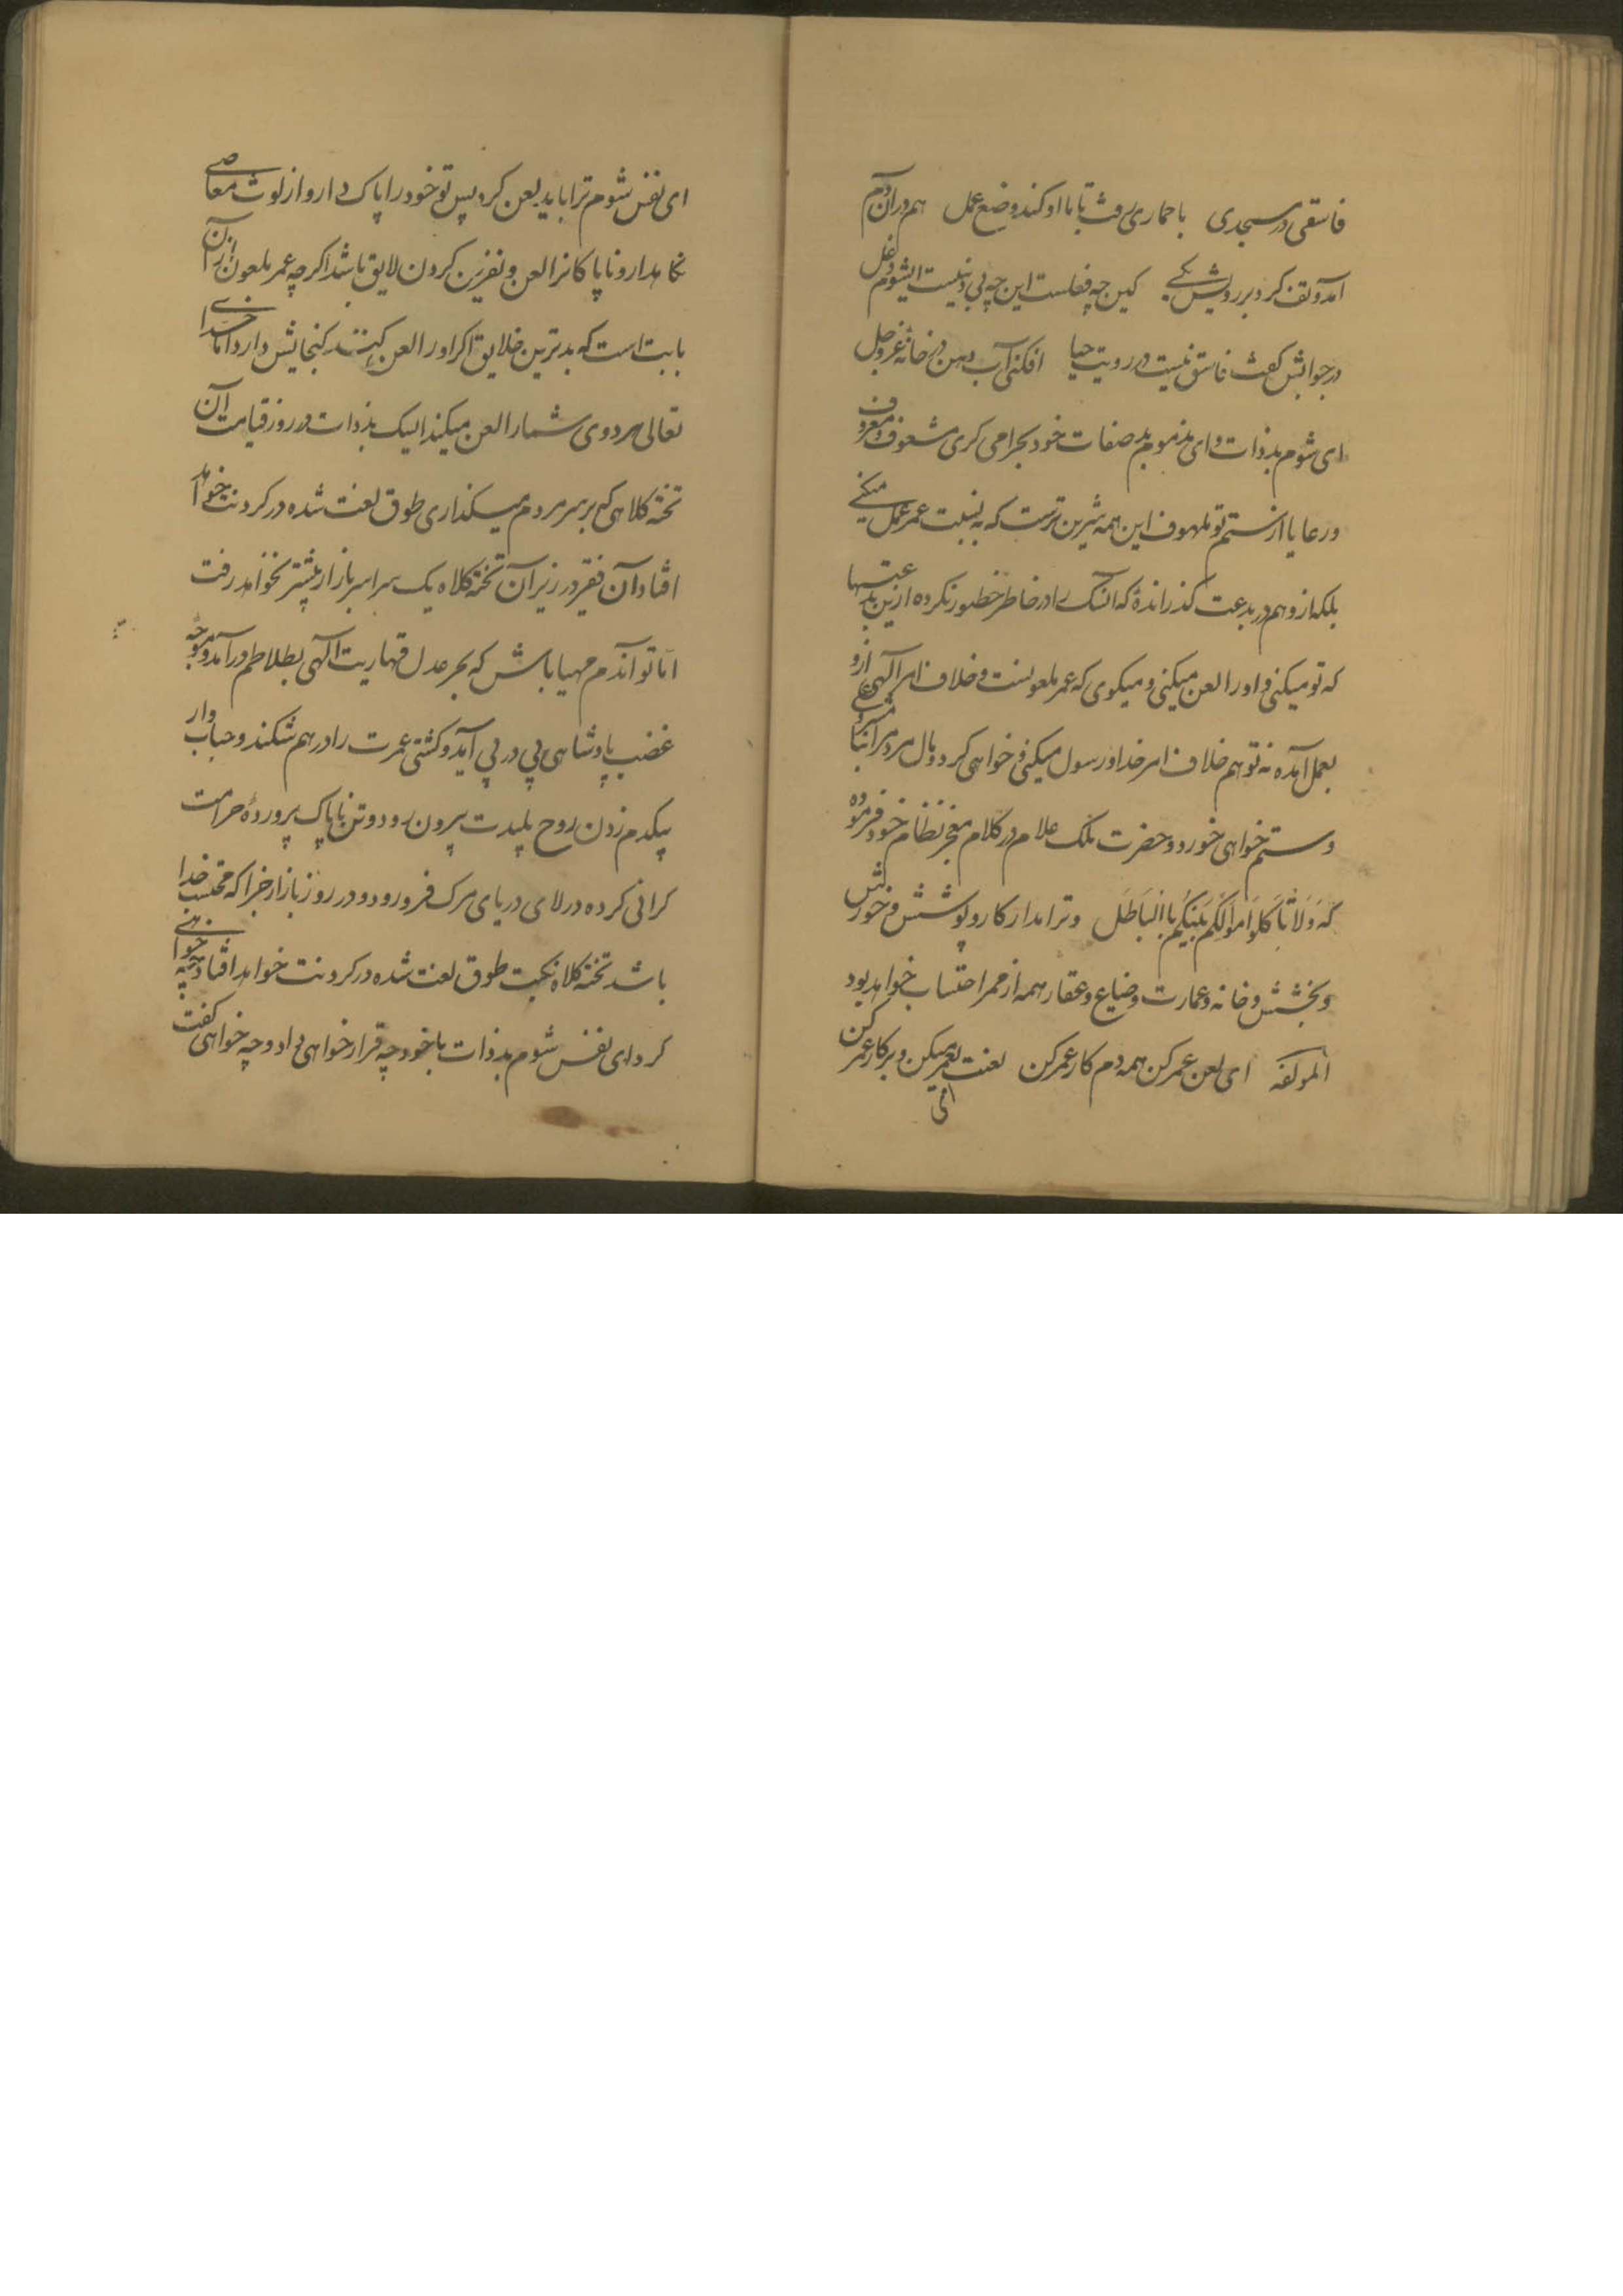 فاسقی در مسجدی با حماری رفت تا با او کند وضع عمل هم در آن دم
آمد و تف کرد بر رویش یکی کین چه فعلست این چه بی دینیست ای شوم دغل
در جوابش گفت فاسق نیست در رویت حیا افکنی آب دهن در خانهٔ عز و جل
ای شوم بدذات و ای مذموم بد صفات خود بحرامی کری مشعوف و معروف
و رعایا از ستم تو ملهوف این همه شیرین ترست که به نسبت عمر عمل میکنی
بلکه از و هم در بدعت گذرانده که آنسگ را در خاطر خطور نکرده ازین بدعتیها
که تو میکنی و او را لعن میکنی و میکوی که عمر ملعونست و خلاف امر آلهی ازو
بعمل آمده نه تو هم خلاف امر خدا و رسول میکنی و خواهی کرد و مال مردم را
و ستم خواهی خورد و حضرت ملک علام در کلام معجز نظام خود فرموده
که وَلَا تَأکلوا اَموالَکم بَینَکُم بِالبَاطَل و ترا مدار کار و پوشش و خورش
و بخشش و خانه و عمارت و ضیاع و عقار همه از ممر احتساب خواهد بود
المولفه ای لعن عمر کن همه دم کار عمر کن لعنت بعمر میکن و بر کار عمر کن
ای
ای نفس شوم ترا باید لعن کرد پس تو خود را پاک دار و از لوث معاصی
نگاهدار و ناپاکانرا لعن و نفرین کردن لایق باشد اکرچه عمر ملعون از آن
بابت است که بدترین خلایق اکر او را لعن کنند کنجایش دارد اما خدای
تعالی هر دوی شما را لعن میکند الیک بدذات در روز قیامت آن
تخته کلاهی که بر سر مردم میکذاری طوق لعنت شده در کردنت خواهد
افتاد آن فقیر در زیر آن تخته کلاه یک سراسر بازار بیشتر نخواهد رفت
اما تو آندم مهیا باش که بحر عدل قهاریت آلهی بطلاطم درآمد و موجه
غضب پادشاهی پی در پی آید و کشتی عمرت را درهم شکند و حباب وار
بیکدم زدن روح پلیدت بیرون رود و تن ناپاک پروردهٔ حرامت
کرانی کرده در لای دریای مرک فرو رود و در روز بازار جزا که محتسب خدا
باشد تخته کلاه نکبت طوق لعنت شده در کردنت خواهد افتاد چه خواهی
کرد ای نفس شوم بدذات با خود چه قرار خواهی داد و چه خواهی کفت